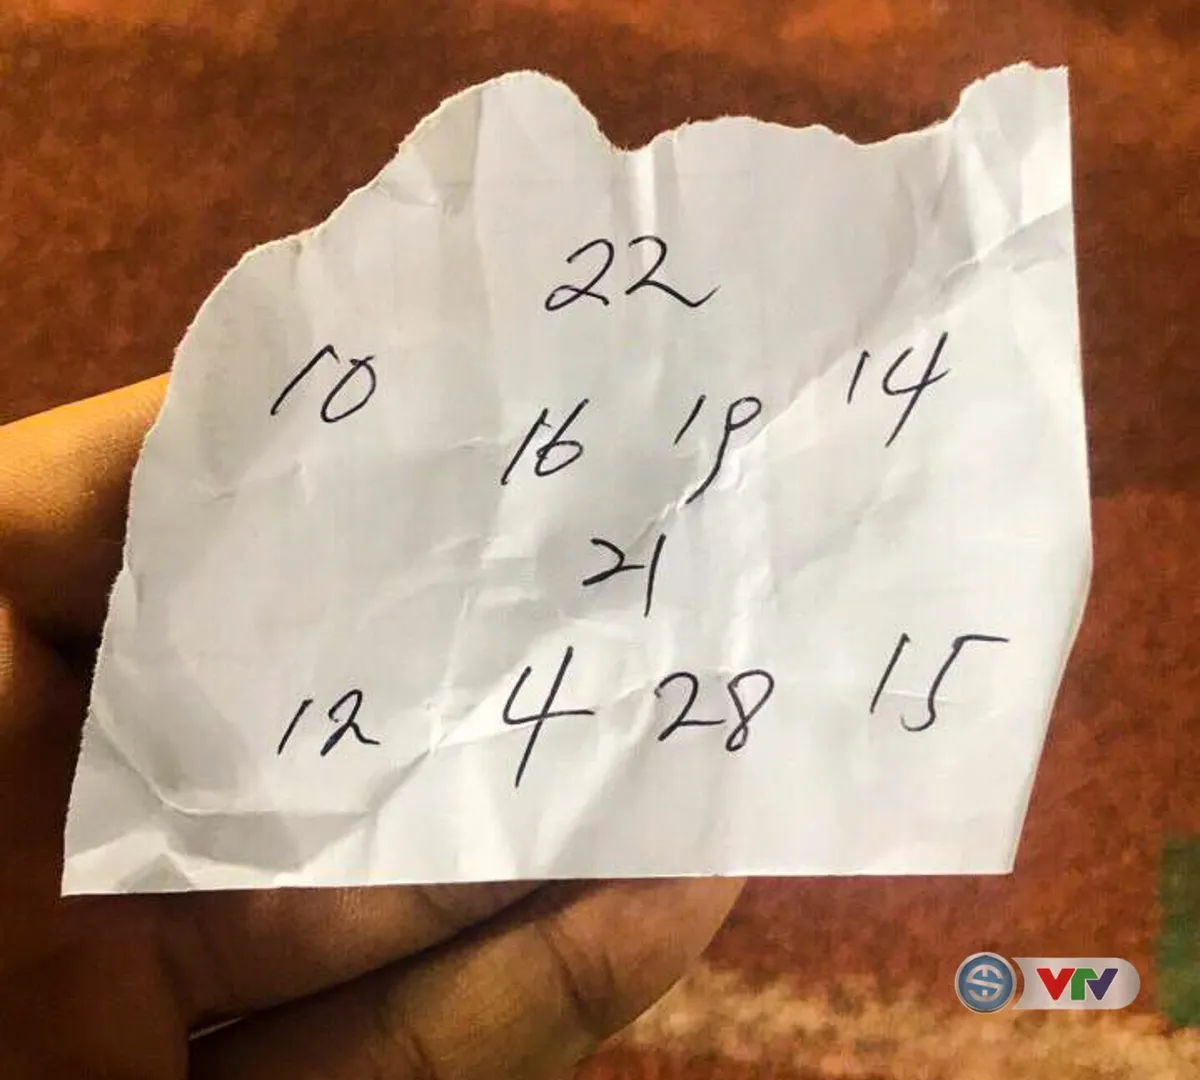 22
10 14
16 19
21
12 4 28 15
VTV